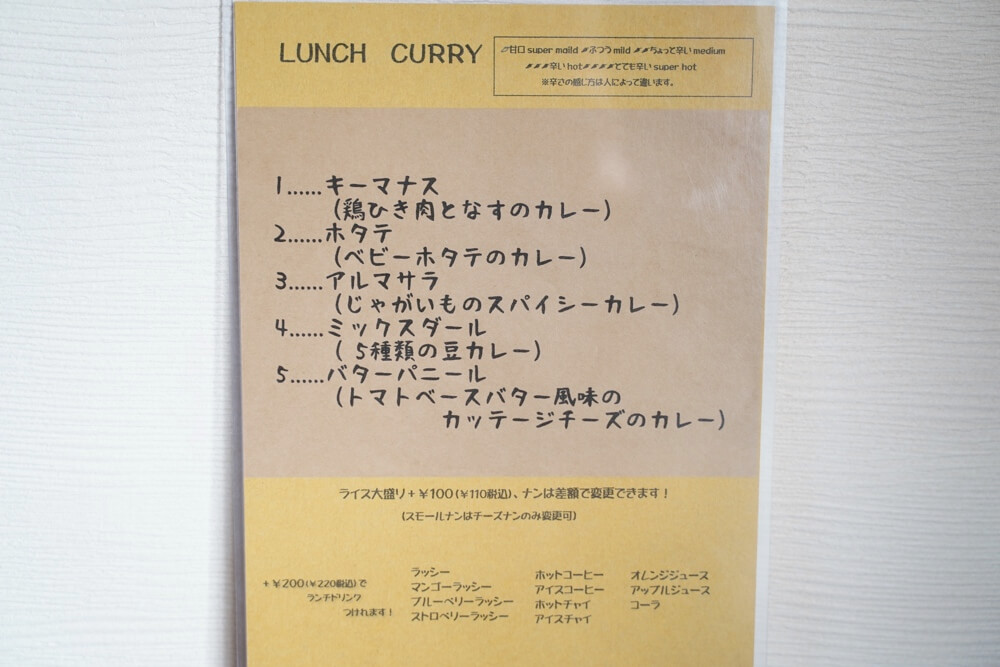 LUNCH CURRY
甘口 super maild ふつう mild ちょっと辛い medium
辛い hot とても辛い super hot
※辛さの感じ方は人によって違います。
1......キーマナス
(鶏ひき肉となすのカレー)
2......ホタテ
(ベビーホタテのカレー)
3......アルマサラ
(じゃがいものスパイシーカレー)
4......ミックスダール
( 5種類の豆カレー)
5......バターパニール
(トマトベースバター風味の
カッテージチーズのカレー)
ライス大盛り+¥100(¥110税込)、ナンは差額で変更できます！
(スモールナンはチーズナンのみ変更可)
+¥200(¥220税込)で
ランチドリンク
つけれます！
ラッシー
マンゴーラッシー
ブルーベリーラッシー
ストロベリーラッシー
ホットコーヒー
アイスコーヒー
ホットチャイ
アイスチャイ
オレンジジュース
アップルジュース
コーラ